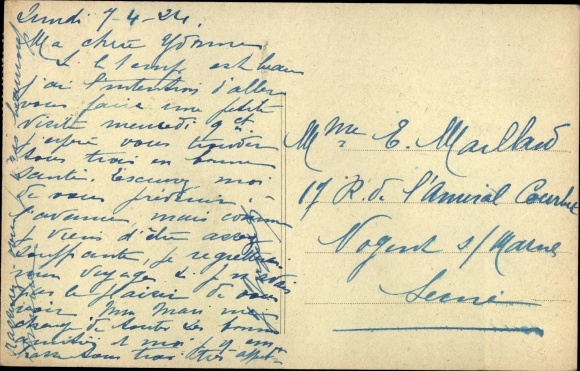 Lundi 7-4-24.
Ma chère Yvonne
Si le temps est beau
j'ai l'intention d'aller
vous faire une petite
visite mercredi 9 ct
j'espère vous trouver
tous trois en bonne
santé. Excusez moi
de vous prévenir à
l'avance, mais comme
je viens d'être assez
souffrante, je regretterais
mon voyage si je n'avais
pas le plaisir de vous
voir Mon Mari me
charge de toutes ses bonnes
amitiés et moi je vous em
brasse tous trois très affectt
Mme E. Maillard
17 R. de l'Amiral Courbet
Nogent s/Marne
Seine